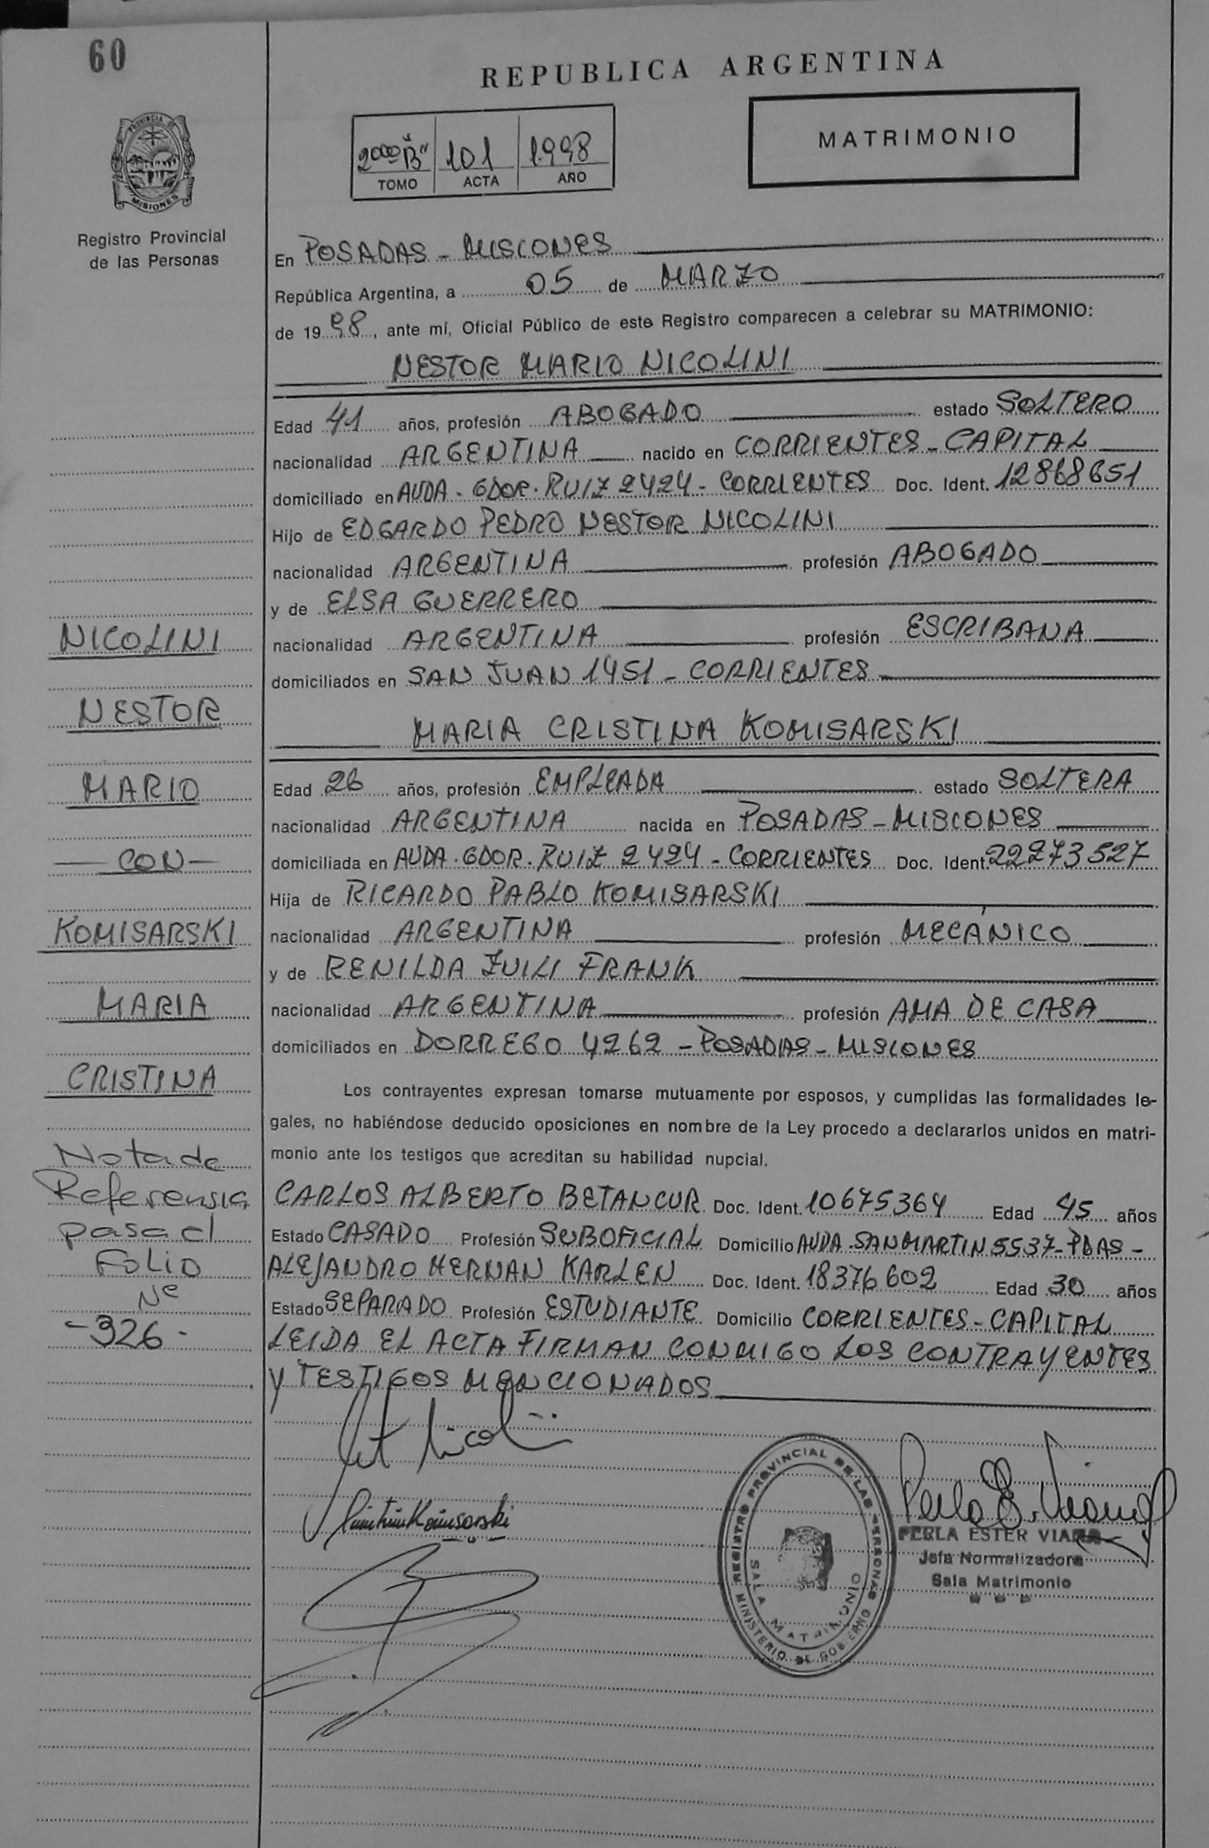 60
REPUBLICA ARGENTINA
PROVINCIA DE
MISIONES
2000 "B" 101 1998
TOMO ACTA AÑO
MATRIMONIO
Registro Provincial
de las Personas
En POSADAS - MISIONES
República Argentina, a 05 de MARZO
de 19 98, ante mí, Oficial Público de este Registro comparecen a celebrar su MATRIMONIO:
NESTOR MARIO NICOLINI
Edad 41 años, profesión ABOGADO estado SOLTERO
nacionalidad ARGENTINA nacido en CORRIENTES - CAPITAL
domiciliado en AVDA. GDOR. RUIZ 2424 - CORRIENTES Doc. Ident. 12868651
Hijo de EDGARDO PEDRO NESTOR NICOLINI
nacionalidad ARGENTINA profesión ABOGADO
y de ELSA GUERRERO
nacionalidad ARGENTINA profesión ESCRIBANA
domiciliados en SAN JUAN 1451 - CORRIENTES
MARIA CRISTINA KOMISARSKI
Edad 26 años, profesión EMPLEADA estado SOLTERA
nacionalidad ARGENTINA nacida en POSADAS - MISIONES
domiciliada en AVDA. GDOR. RUIZ 2424 - CORRIENTES Doc. Ident. 22273527
Hija de RICARDO PABLO KOMISARSKI
nacionalidad ARGENTINA profesión MECÁNICO
y de RENILDA ZUILI FRANK
nacionalidad ARGENTINA profesión AMA DE CASA
domiciliados en DORREGO 4262 - POSADAS - MISIONES
Los contrayentes expresan tomarse mutuamente por esposos, y cumplidas las formalidades le-
gales, no habiéndose deducido oposiciones en nombre de la Ley procedo a declararlos unidos en matri-
monio ante los testigos que acreditan su habilidad nupcial.
CARLOS ALBERTO BETANCUR Doc. Ident. 10675364 Edad 45 años
Estado CASADO Profesión SUBOFICIAL Domicilio AVDA. SAN MARTIN 5537 - PDAS -
ALEJANDRO HERNAN KARLEN Doc. Ident. 18376602 Edad 30 años
Estado SEPARADO Profesión ESTUDIANTE Domicilio CORRIENTES - CAPITAL
LEIDA EL ACTA FIRMAN CONMIGO LOS CONTRAYENTES
Y TESTIGOS MENCIONADOS
NICOLINI
NESTOR
MARIO
- CON -
KOMISARSKI
MARIA
CRISTINA
Nota de
Referensia
pasa al
Folio
Nº
- 326 -
REGISTRO PROVINCIAL DE LAS PERSONAS
MINISTERIO DE GOBIERNO
SALA MATRIMONIO
PERLA ESTER VIANA
Jefa Normalizadora
Sala Matrimonio